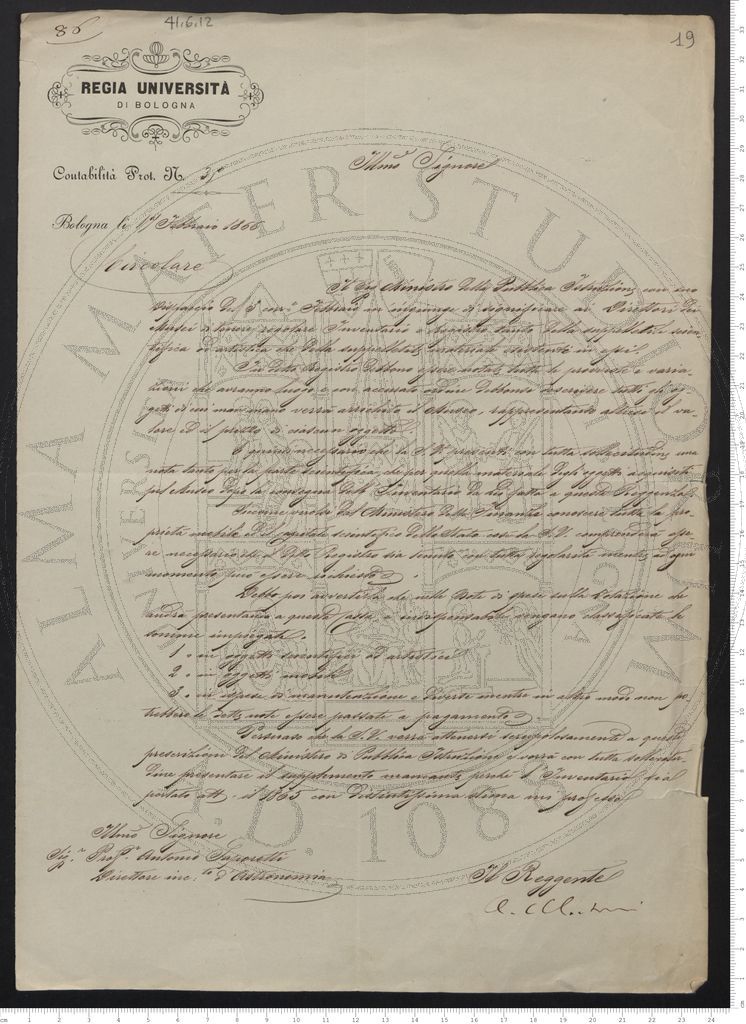 86
41.6.12
19
REGIA UNIVERSITÀ
DI BOLOGNA
Contabilità Prot. N.
Illmo Signore
Bologna li Febbraio 1866
Circolare
Il Sig. Ministro della Pubblica Istruzione con suo
dispaccio del 5 corr. Febbraio m'ingiunge di significare ai Direttori dei
Musei di tenere regolare Inventario e registro tanto della suppellettile scien
tifica od artistica che della suppellettile materiale esistente in essi.
In detto registro debbono essere notate tutte le provviste e varia
zioni che avranno luogo e con accurato ordine debbonsi inscrivere tutti gli og
getti di cui man mano verrà arricchito il Museo, rappresentante altresì il va
lore ed il prezzo di ciascun oggetto.
È quindi necessario che la S. V. presenti con tutta sollecitudine una
nota tanto per la parte scientifica che per quella materiale degli oggetti
pel Museo dopo la consegna dell' Inventario da lei fatta a questa Reggenza.
Siccome vuolsi dal Ministero delle Finanze conoscere tutta la pro
prietà mobile ed il capitale scientifico dello Stato così la S. V. comprenderà esse
re necessario che il detto Registro sia tenuto con tutta regolarità mentre ad ogni
momento può essere richiesto.
Debbo poi avvertirla che nelle Note di spese sulla Dotazione che
andrà presentando a questa Cassa, è indispensabile vengano classificate le
somme impiegate.
1º in oggetti scientifici od artistici
2º in oggetti mobili
3º in ispese di manutenzione e diverse mentre in altro modo non po
trebbero le dette note essere passate a pagamento.
Persuaso che la S. V. vorrà attenersi scrupolosamente a queste
prescrizioni del Ministero di Pubblica Istruzione e vorrà con tutta sollecitu
dine presentare il supplemento mancante perchè l'Inventario sia
portato a tutto il 1865 con distintissima stima mi professo
Illmo Signore
Sig. Prof. Antonio Saporetti
Direttore inc.to d'Astronomia
Il Reggente
ALMA MATER STUDIORUM
A.D. 1088